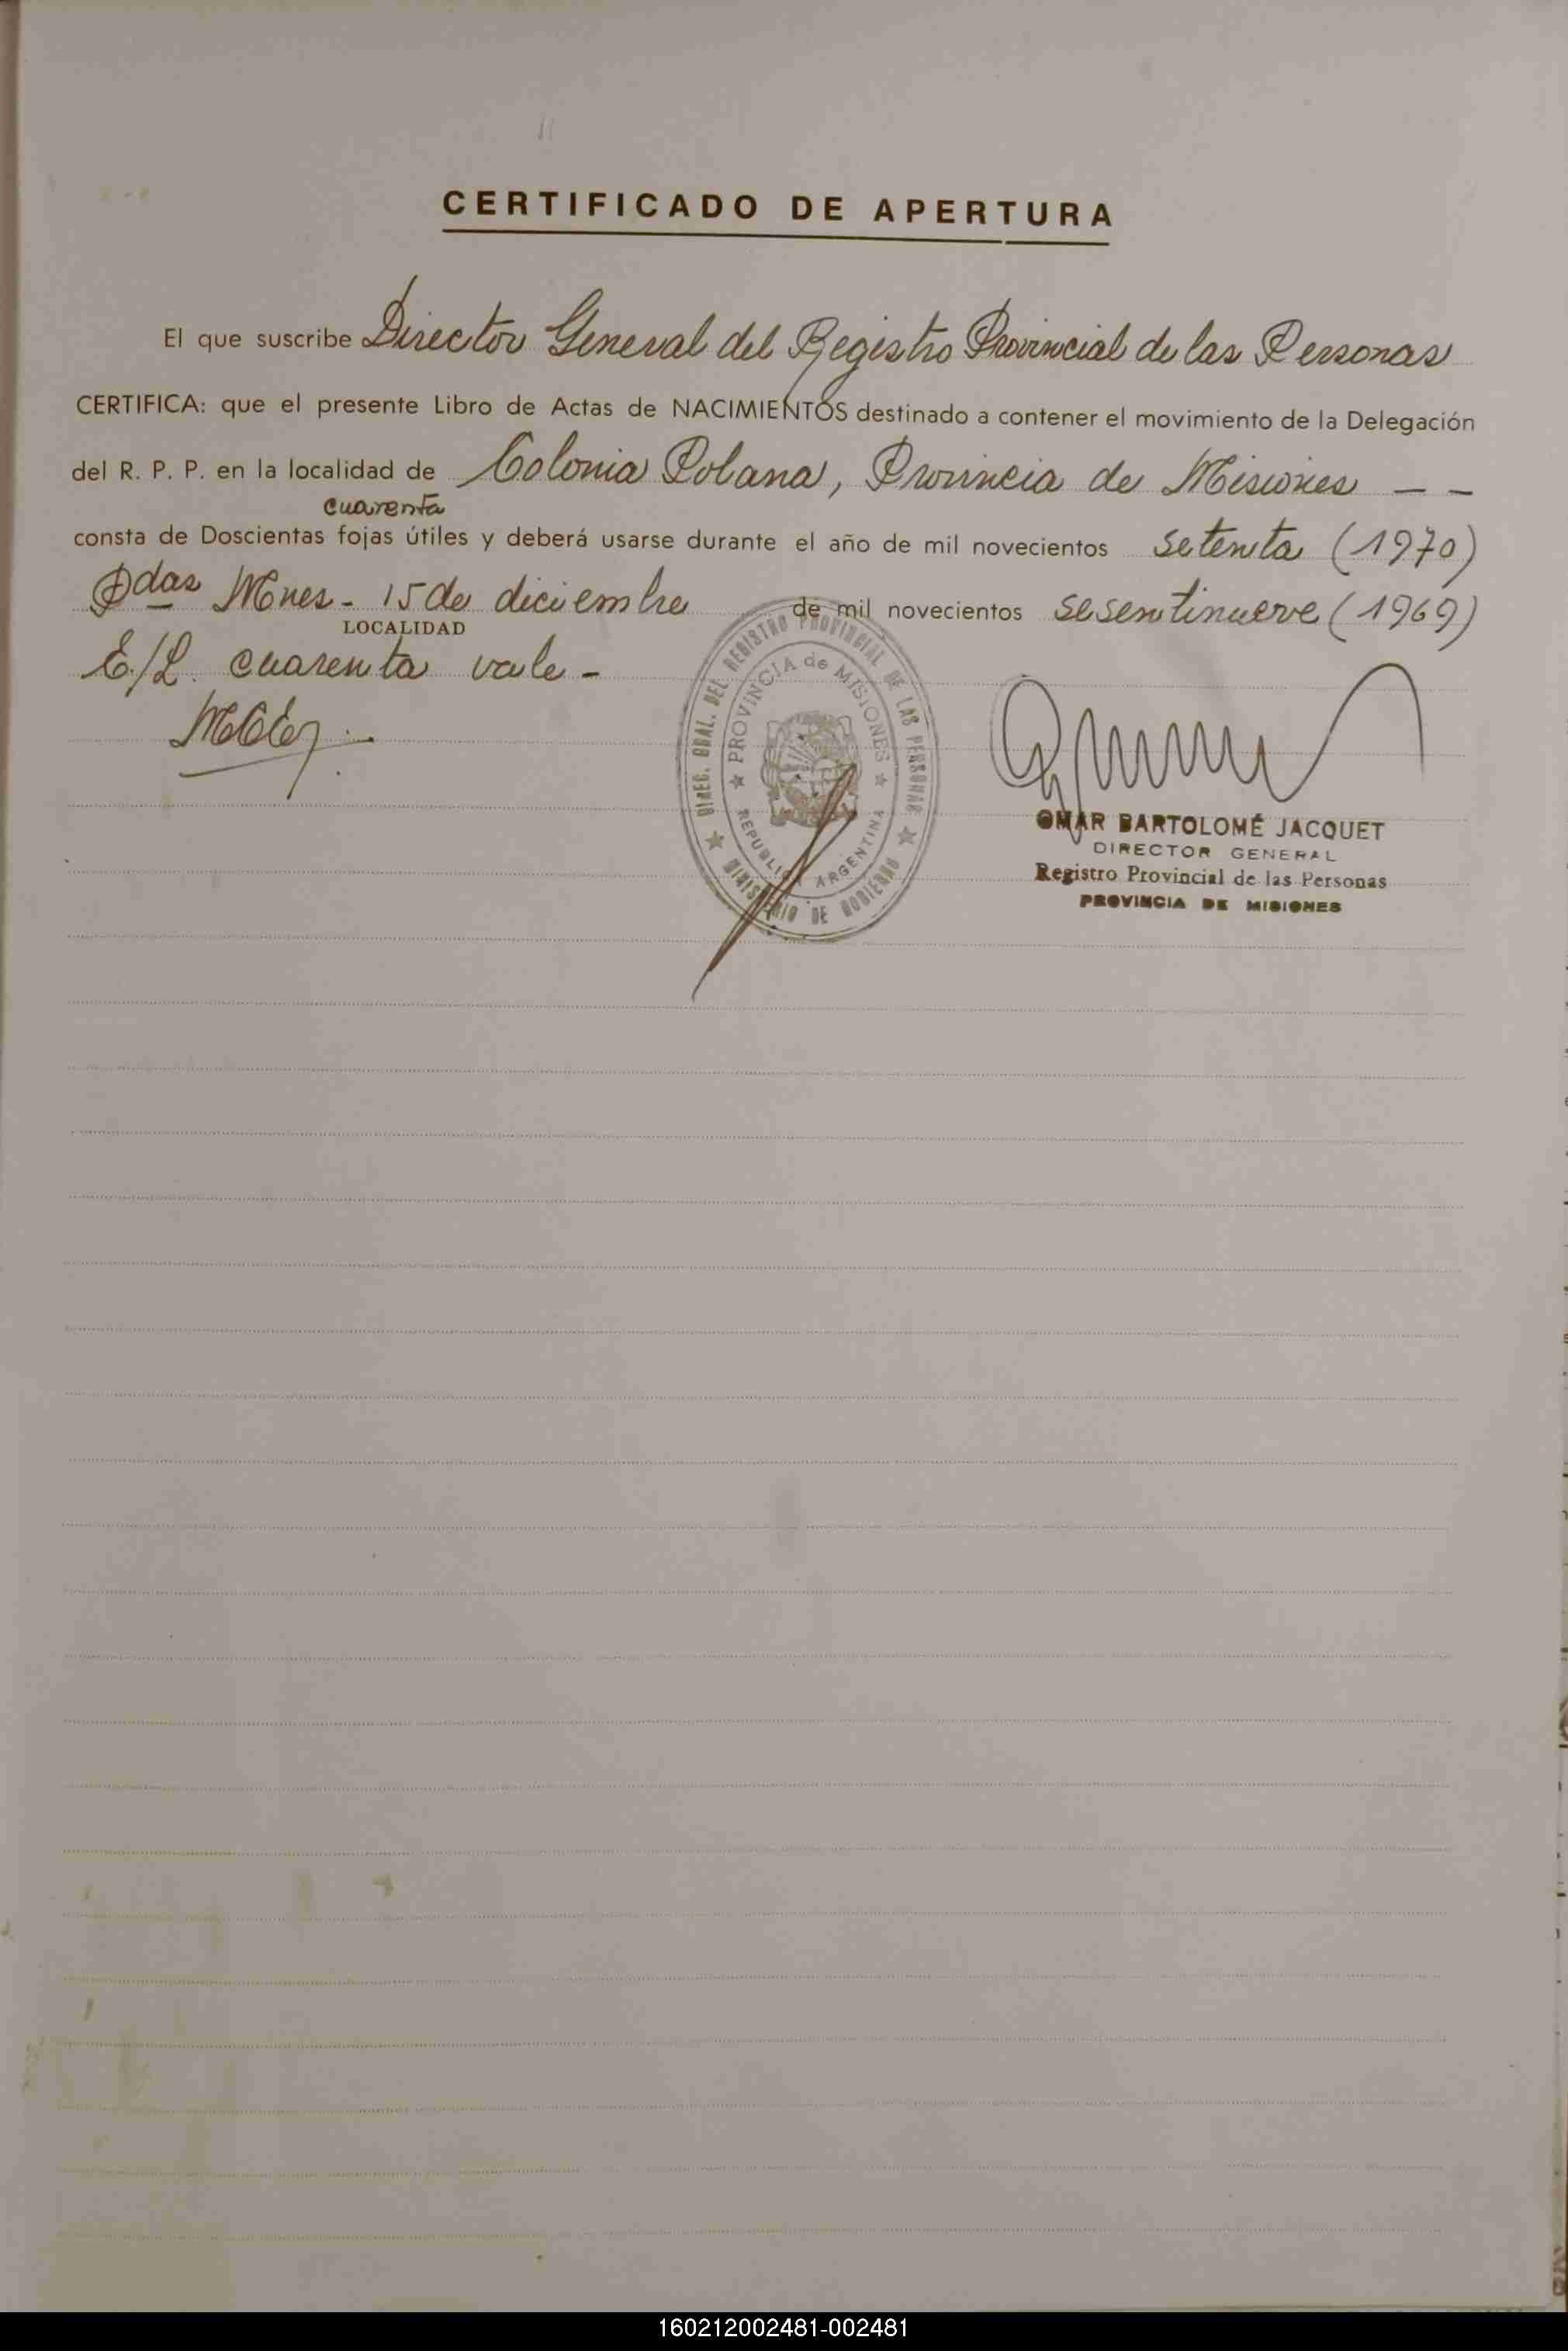 CERTIFICADO DE APERTURA
El que suscribe Director General del Registro Provincial de las Personas
CERTIFICA: que el presente Libro de Actas de NACIMIENTOS destinado a contener el movimiento de la Delegación
del R. P. P. en la localidad de Colonia Polana, Provincia de Misiones - -
cuarenta
consta de Doscientas fojas útiles y deberá usarse durante el año de mil novecientos setenta (1970)
Pdas Mnes - 15 de diciembre de mil novecientos sesentinueve (1969)
LOCALIDAD
E/L. cuarenta vale -
DIREC. GRAL. DEL REGISTRO PROVINCIAL DE LAS PERSONAS
PROVINCIA de MISIONES
REPUBLICA ARGENTINA
MINISTERIO DE GOBIERNO
OMAR BARTOLOMÉ JACQUET
DIRECTOR GENERAL
Registro Provincial de las Personas
PROVINCIA DE MISIONES
160212002481-002481